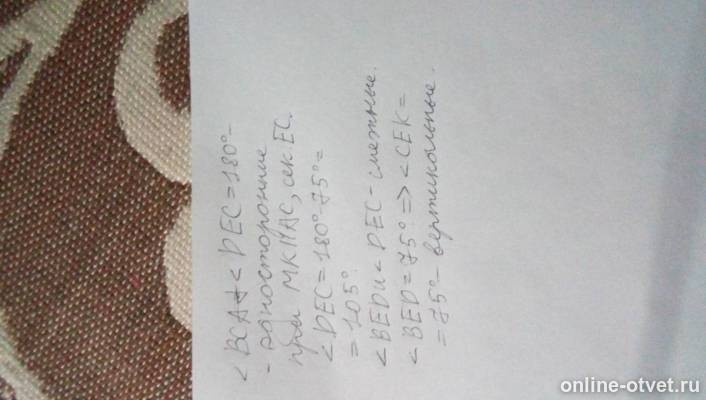 <BCA+<DEC=180°-
- односторонние
при MK||AC, сек. EC.
<DEC=180°-75°=
=105°.
<BED и <DEC - смежные.
<BED=75° => <CEK=
=75° - вертикольные.
online-otvet.ru